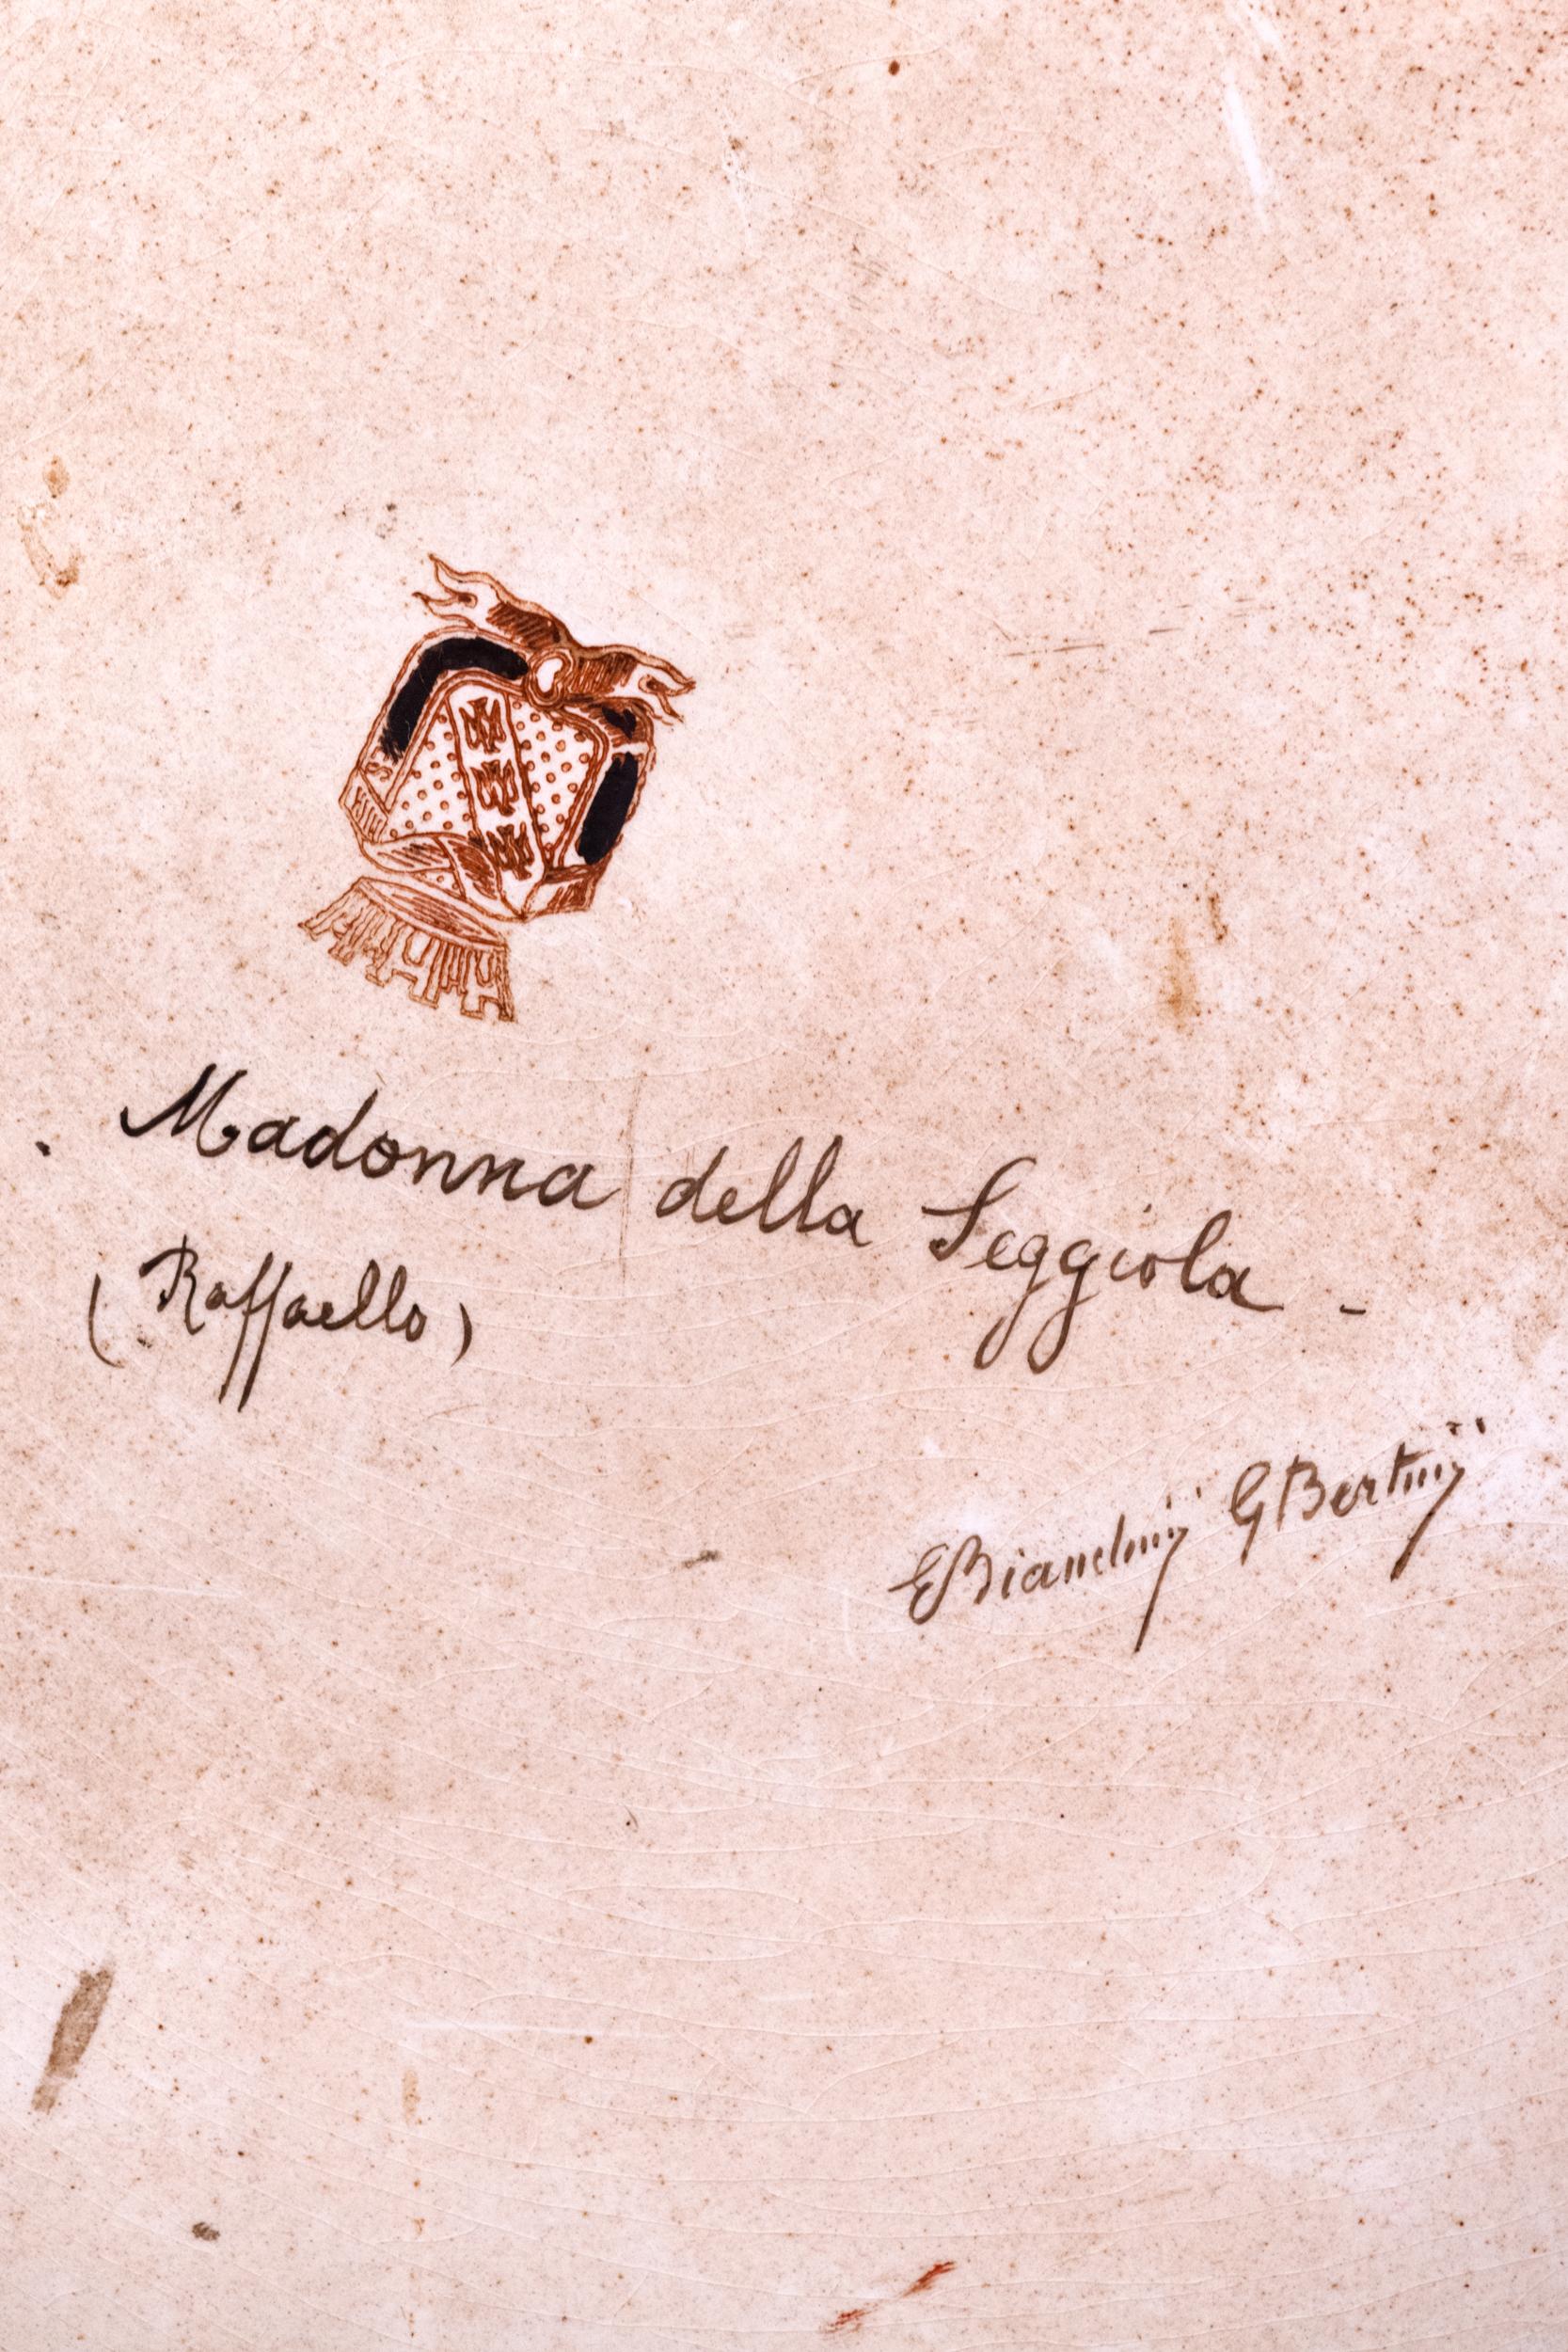 Madonna della Seggiola -
(Raffaello)
E Bianchinij G Bertinij